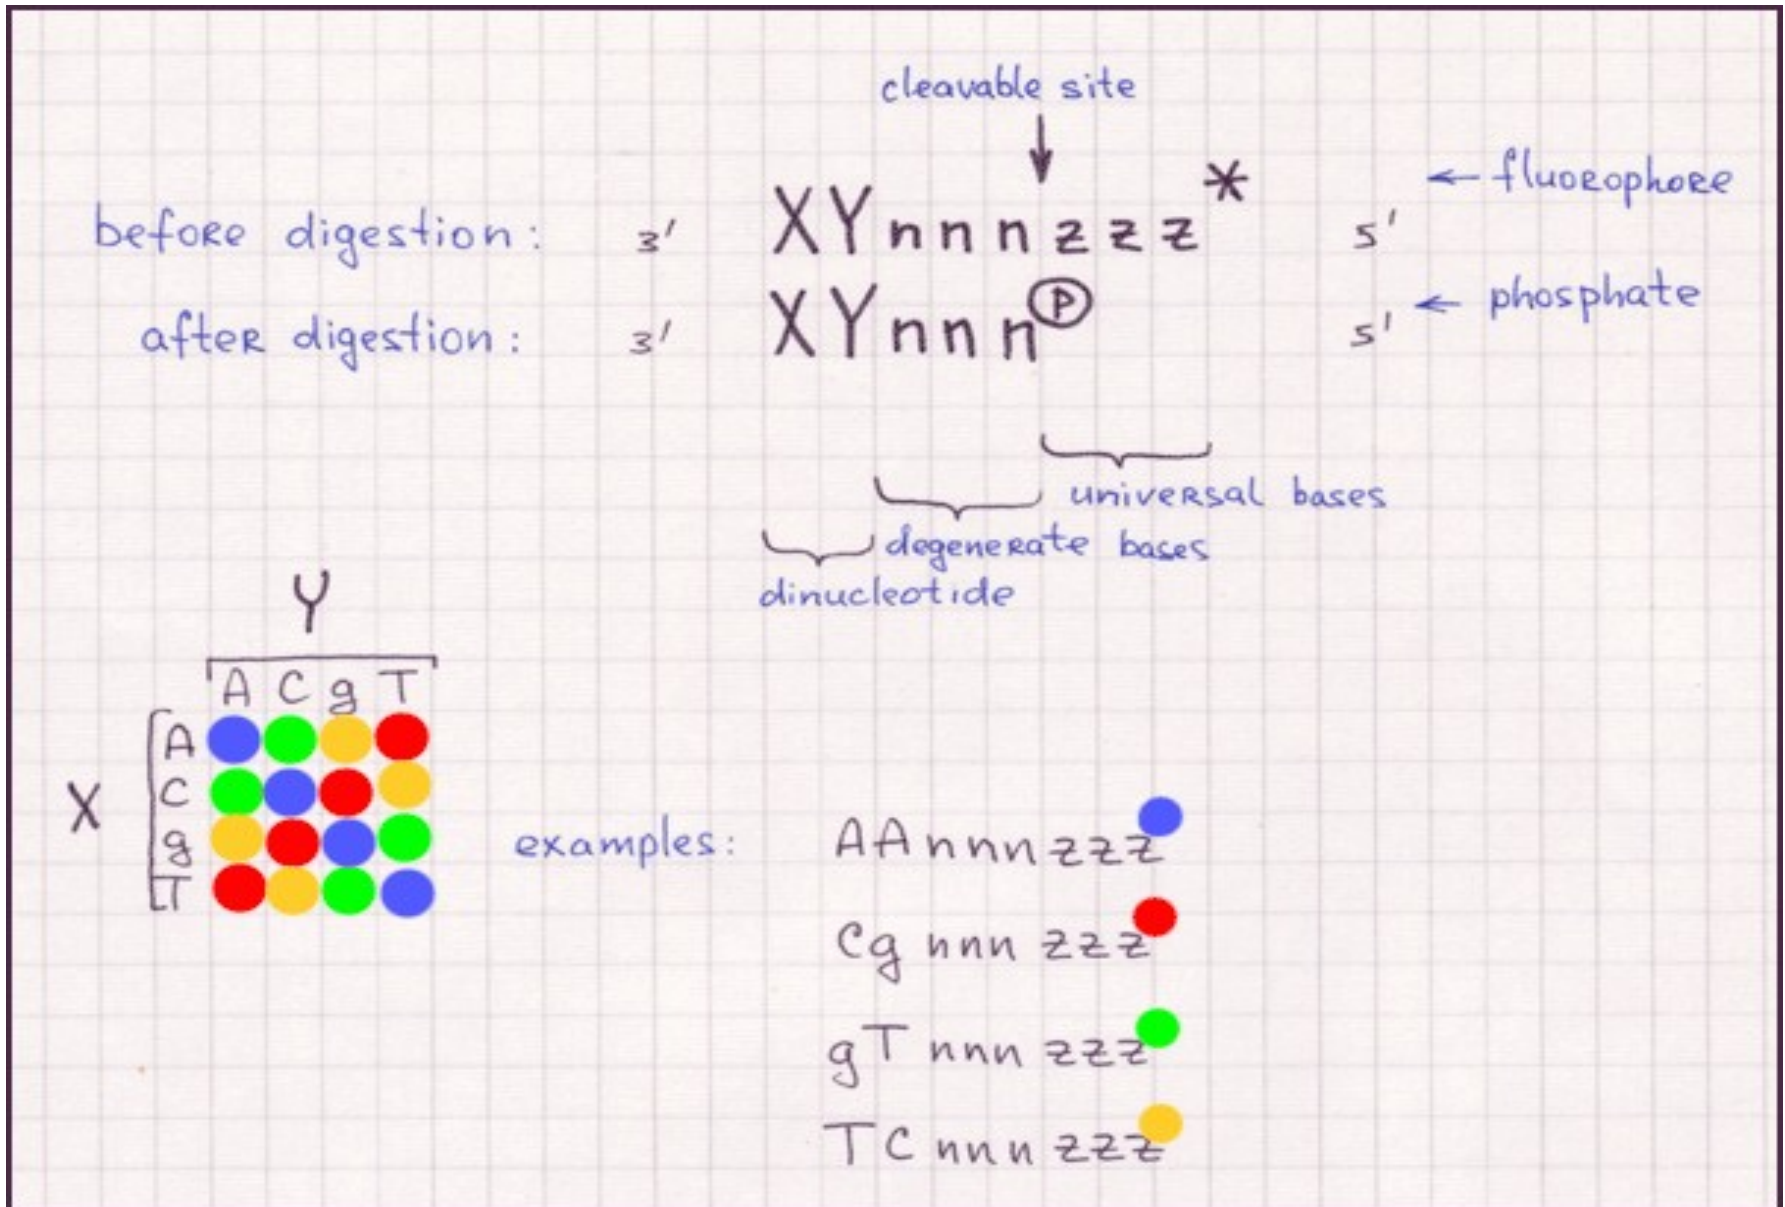 cleavable site
← fluorophore
before digestion: 3' XYnnnzzz* 5'
← phosphate
after digestion: 3' XYnnnⓅ 5'
universal bases
degenerate bases
dinucleotide
Y
A C g T
X
A
C
g
T
examples:
AAnnnzzz
Cg nnn zzz
gT nnn zzz
TC nnn zzz